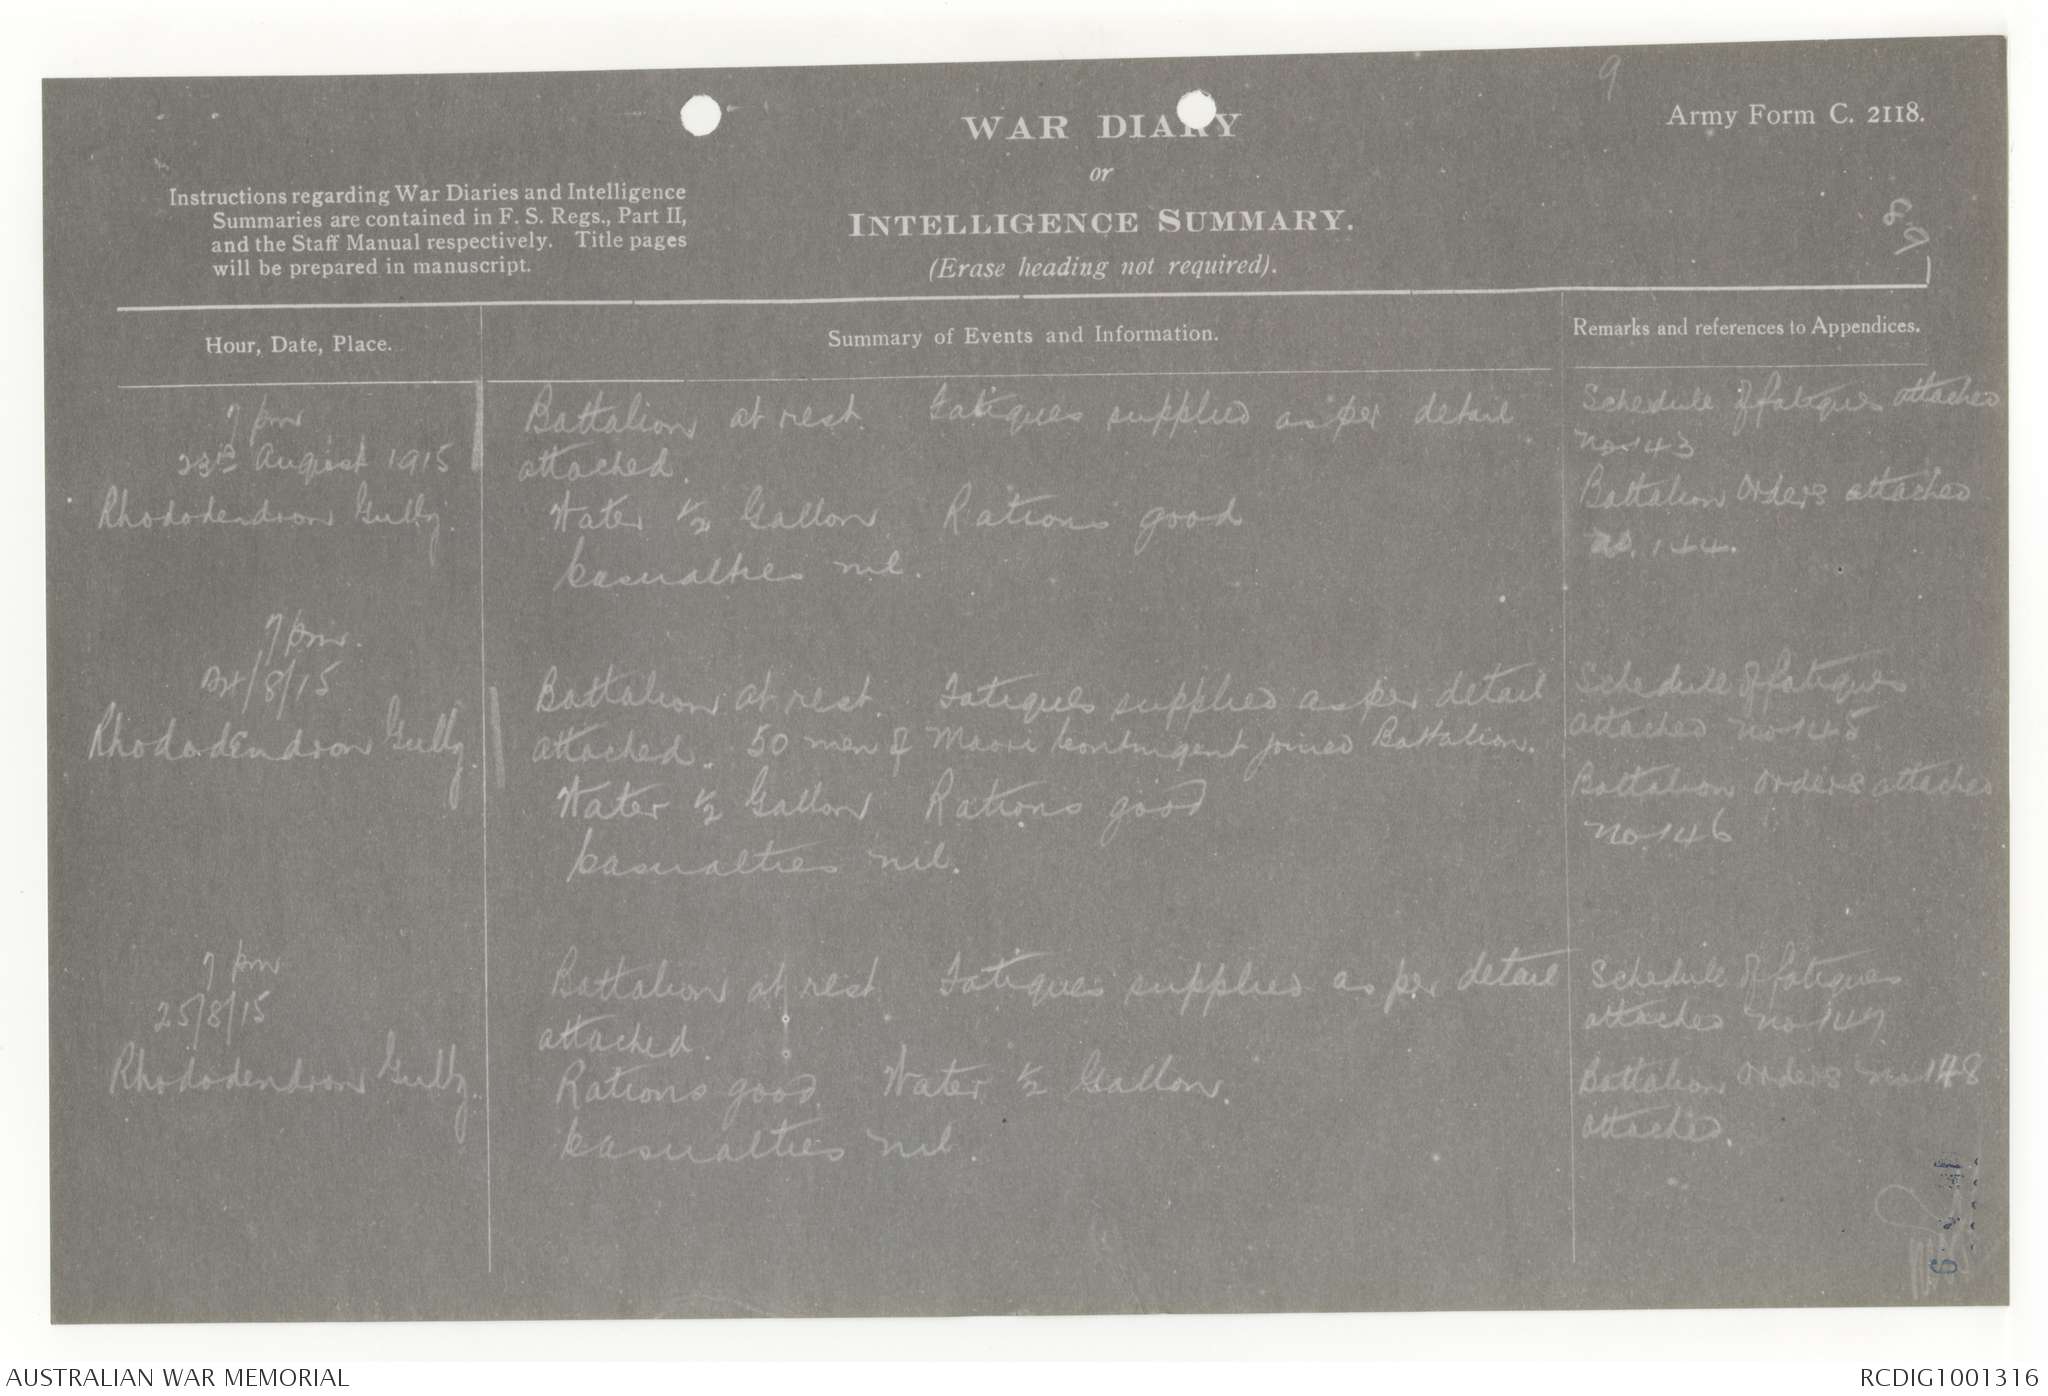 9
Army Form C. 2118.
WAR DIARY
or
INTELLIGENCE SUMMARY.
(Erase heading not required).
Instructions regarding War Diaries and Intelligence
Summaries are contained in F. S. Regs., Part II,
and the Staff Manual respectively. Title pages
will be prepared in manuscript.
89
Hour, Date, Place.
Summary of Events and Information.
Remarks and references to Appendices.
7 pm
23rd August 1915
Rhododendron Gully.
Battalion at rest. Fatigues supplied as per detail
attached.
Water ½ Gallon Rations good
Casualties nil.
Schedule of fatigues attached
No 143
Battalion Orders attached
No. 144.
7 pm.
24/8/15
Rhododendron Gully.
Battalion at rest. Fatigues supplied as per detail
attached. 50 men of Maori Contingent joined Battalion.
Water ½ Gallon Rations good
Casualties nil.
Schedule of fatigues
attached No 145
Battalion orders attached
No. 146
7 pm
25/8/15
Rhododendron Gully.
Battalion at rest Fatigues supplied as per detail
attached.
Rations good. Water ½ Gallon.
Casualties nil.
Schedule of fatigues
attached No 147
Battalion Orders No 148
attached.
AUSTRALIAN WAR MEMORIAL
RCDIG1001316